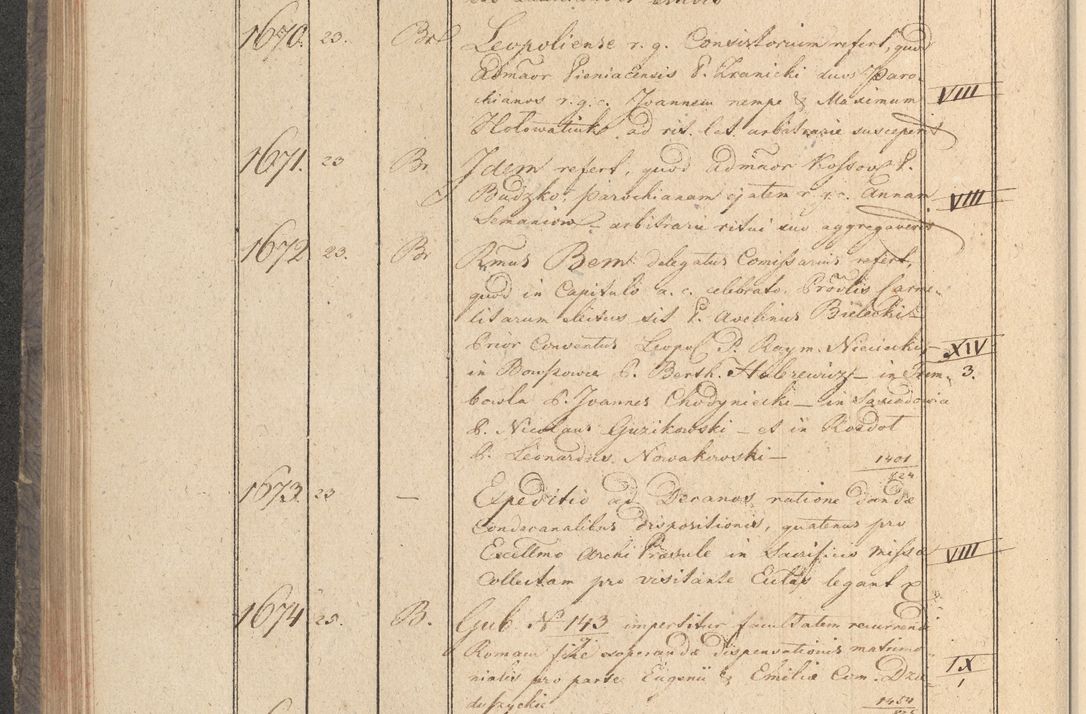 1670. 23. Br Leopoliense r. g. Consistorium refert, quod
Admaor Pieniacensis P. Kranicki suos Paro-
chianos r. g. c. Joannem nempe & Maximum VIII
Holowatiuk ad rit. lat. arbitrarie susceperit
1671. 23 Br Idem refert, quod Admaor Kossow P.
Budzko parochianam ejatem r. g. c. Annam VIII
Semaniow – arbitrarie ritui suo aggregaverit
1672 23. Br Rmus Bem delegatus Comissarius refert,
quod in Capitulo a. c. celebrato Provlis Carme-
litarum electus sit P. Avelinus Bielecki
Prior Conventus Leopol P. Raym. Nieciecki – XIV
in Bowszowce P. Berth. Habrewicz – in Trem- 3.
bowla P. Joannes Chodyniecki – in Sasiadowice
P. Nicolaus Guzikowski – et in Rozdol
P. Leonardus Nowakowski – 1401
624
1673 23 – Expeditio ad Decanos ratione dandæ
Condecanalibus dispositionis, quatenus pro
Excellmo Archi Præsule in Sacrificio missæ VIII
Collectam pro visitante Ecclas legant
1674 25. B. Gub. No 143 impertitur facultatem recurrendi
Romam pro exoperanda dispensationis matrimo-
nialis pro parte Eugenii & Emiliæ Com. Dzie- IX
1
duszyckie 1454